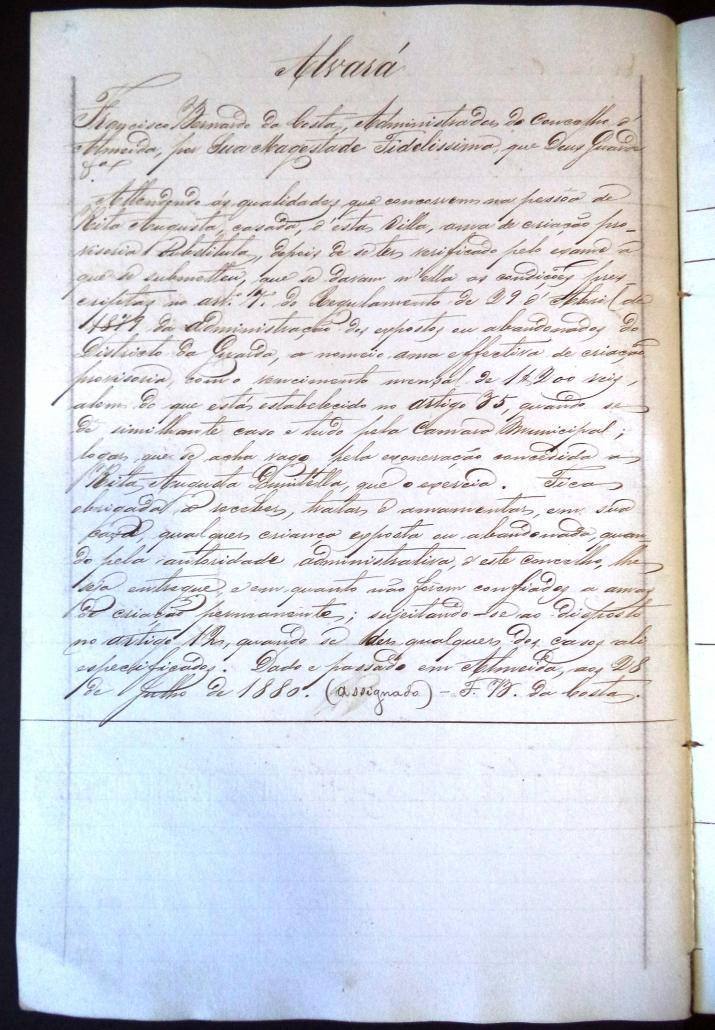 Alvará
Francisco Bernardo da Costa, Administrador do Concelho d'
Almeida, por Sua Magestade Fidelissima, que Deus Guarde
Attendendo ás qualidades, que concorrem na pessôa de
Rita Augusta, casada, d'esta Villa, ama de criação pro-
visoria substituta, depois de se ter verificado pelo exame a
que se submetteu, que se davam n'ella as condições, pres-
criptas no art.º 7.º do Regulamento de 29 d'Abril de
1879 da administração dos expostos ou abandonados do
Districto da Guarda, a nomeio ama effectiva de criação
provisoria, com o vencimento mensal de 1$200 reis,
alem do que está estabelecido no artigo 35, quando se
dê similhante caso e tudo pela Camara Municipal;
logar, que se acha vago, pela exoneração concedida a
Rita Augusta, que o exercia. Fica
obrigada a receber, tratar e amamentar, em sua
casa, qualquer criança exposta ou abandonada, quan-
do pela autoridade administrativa, d'este concelho, lhe
seja entregue, e em quanto não forem confiados a amas
de criação permanente; sujeitando-se ao disposto
no artigo 12, quando se dêr qualquer dos casos ali
especificados. Dado e passado em Almeida, aos 28
de Julho de 1880. (assignado) - F. B. da Costa.